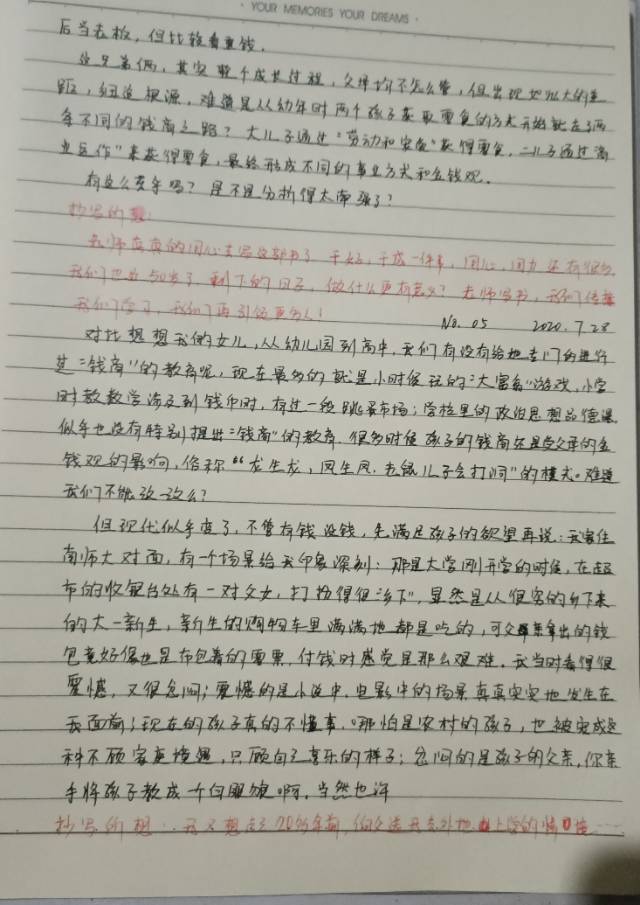 · YOUR MEMORIES YOUR DREAMS ·
后当老板，但比较看重钱。
这兄弟俩，其实整个成长过程，父母均不怎么管，但出现如此大的差
距，细追根源，难道是从幼年时两个孩子获取零食的方式开始就走了两
条不同的钱商之路？大儿子通过“劳动和安全”获得零食，二儿子通过商
业运作”来获得零食，最终形成不同的事业方式和金钱观。
有这么玄乎吗？是不是分析得太牵强了？
抄写所想：
老师真真的用心去写这部书了 干好，干成一件事，用心，用力还有很多，
我们也为50岁了，剩下的日子，做什么更有意义？老师写书，我们传播
我们学习，我们再引领更多人！
No. 05 2020.7.28
对比想想我的女儿，从幼儿园到高中，我们有没有给她专门的进行
过“钱商”的教育呢，现在最多的就是小时候玩的“大富翁”游戏，小学
时教数学涉及到钱币时，有过一段跳蚤市场；学校里的政治思想品德课
似乎也没有特别提出“钱商”的教育，很多时候孩子的钱商还是受父母的金
钱观的影响，俗称“龙生龙，凤生凤，老鼠儿子会打洞”的模式。难道
我们不能改一改么？
但现代似乎变了，不管有钱没钱，先满足孩子的欲望再说：我家住
南师大对面，有一个场景给我印象深刻：那是大学刚开学的时候，在超
市的收银台处有一对父女，打扮得很“乡下”，显然是从很穷的乡下来
的大一新生，新生的购物车里满满地都是吃的，可父亲拿出的钱
包竟好像也是布包着的零票，付钱时感觉是那么艰难。我当时看得很
震憾，又很忿闷；震憾的是小说中，电影中的场景真真实实地发生在
我面前；现在的孩子真的不懂事，哪怕是农村的孩子，也被宠成这
种不顾家庭情况，只顾自己享乐的样子；忿闷的是孩子的父亲，你亲
手将孩子教成一个白眼狼啊。当然也许
抄写所想：我又想起了20多年前，伯父送我去外地上学的情